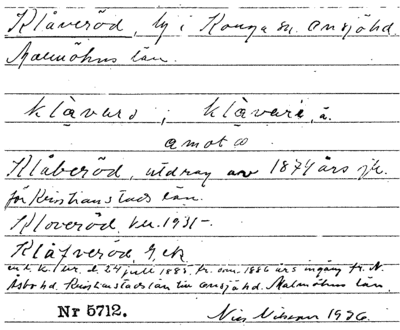 Klåveröd, by i Konga sn. Onsjö hd.
Malmöhus län.
klàvarö, klàvari, ä.
amot ∞
Klåberöd, utdrag av 1874 års jk.
för Kristianstads län.
Kloveröd, 1931-
Klåfveröd, Gek
enl. k. br. d. 24 juli 1885, fr. om. 1886 års ingång fr. N.
Åsbo hd. Kristianstads län till Onsjö hd. Malmöhus län.
Nr 5712. Nils Nilsson 1936.